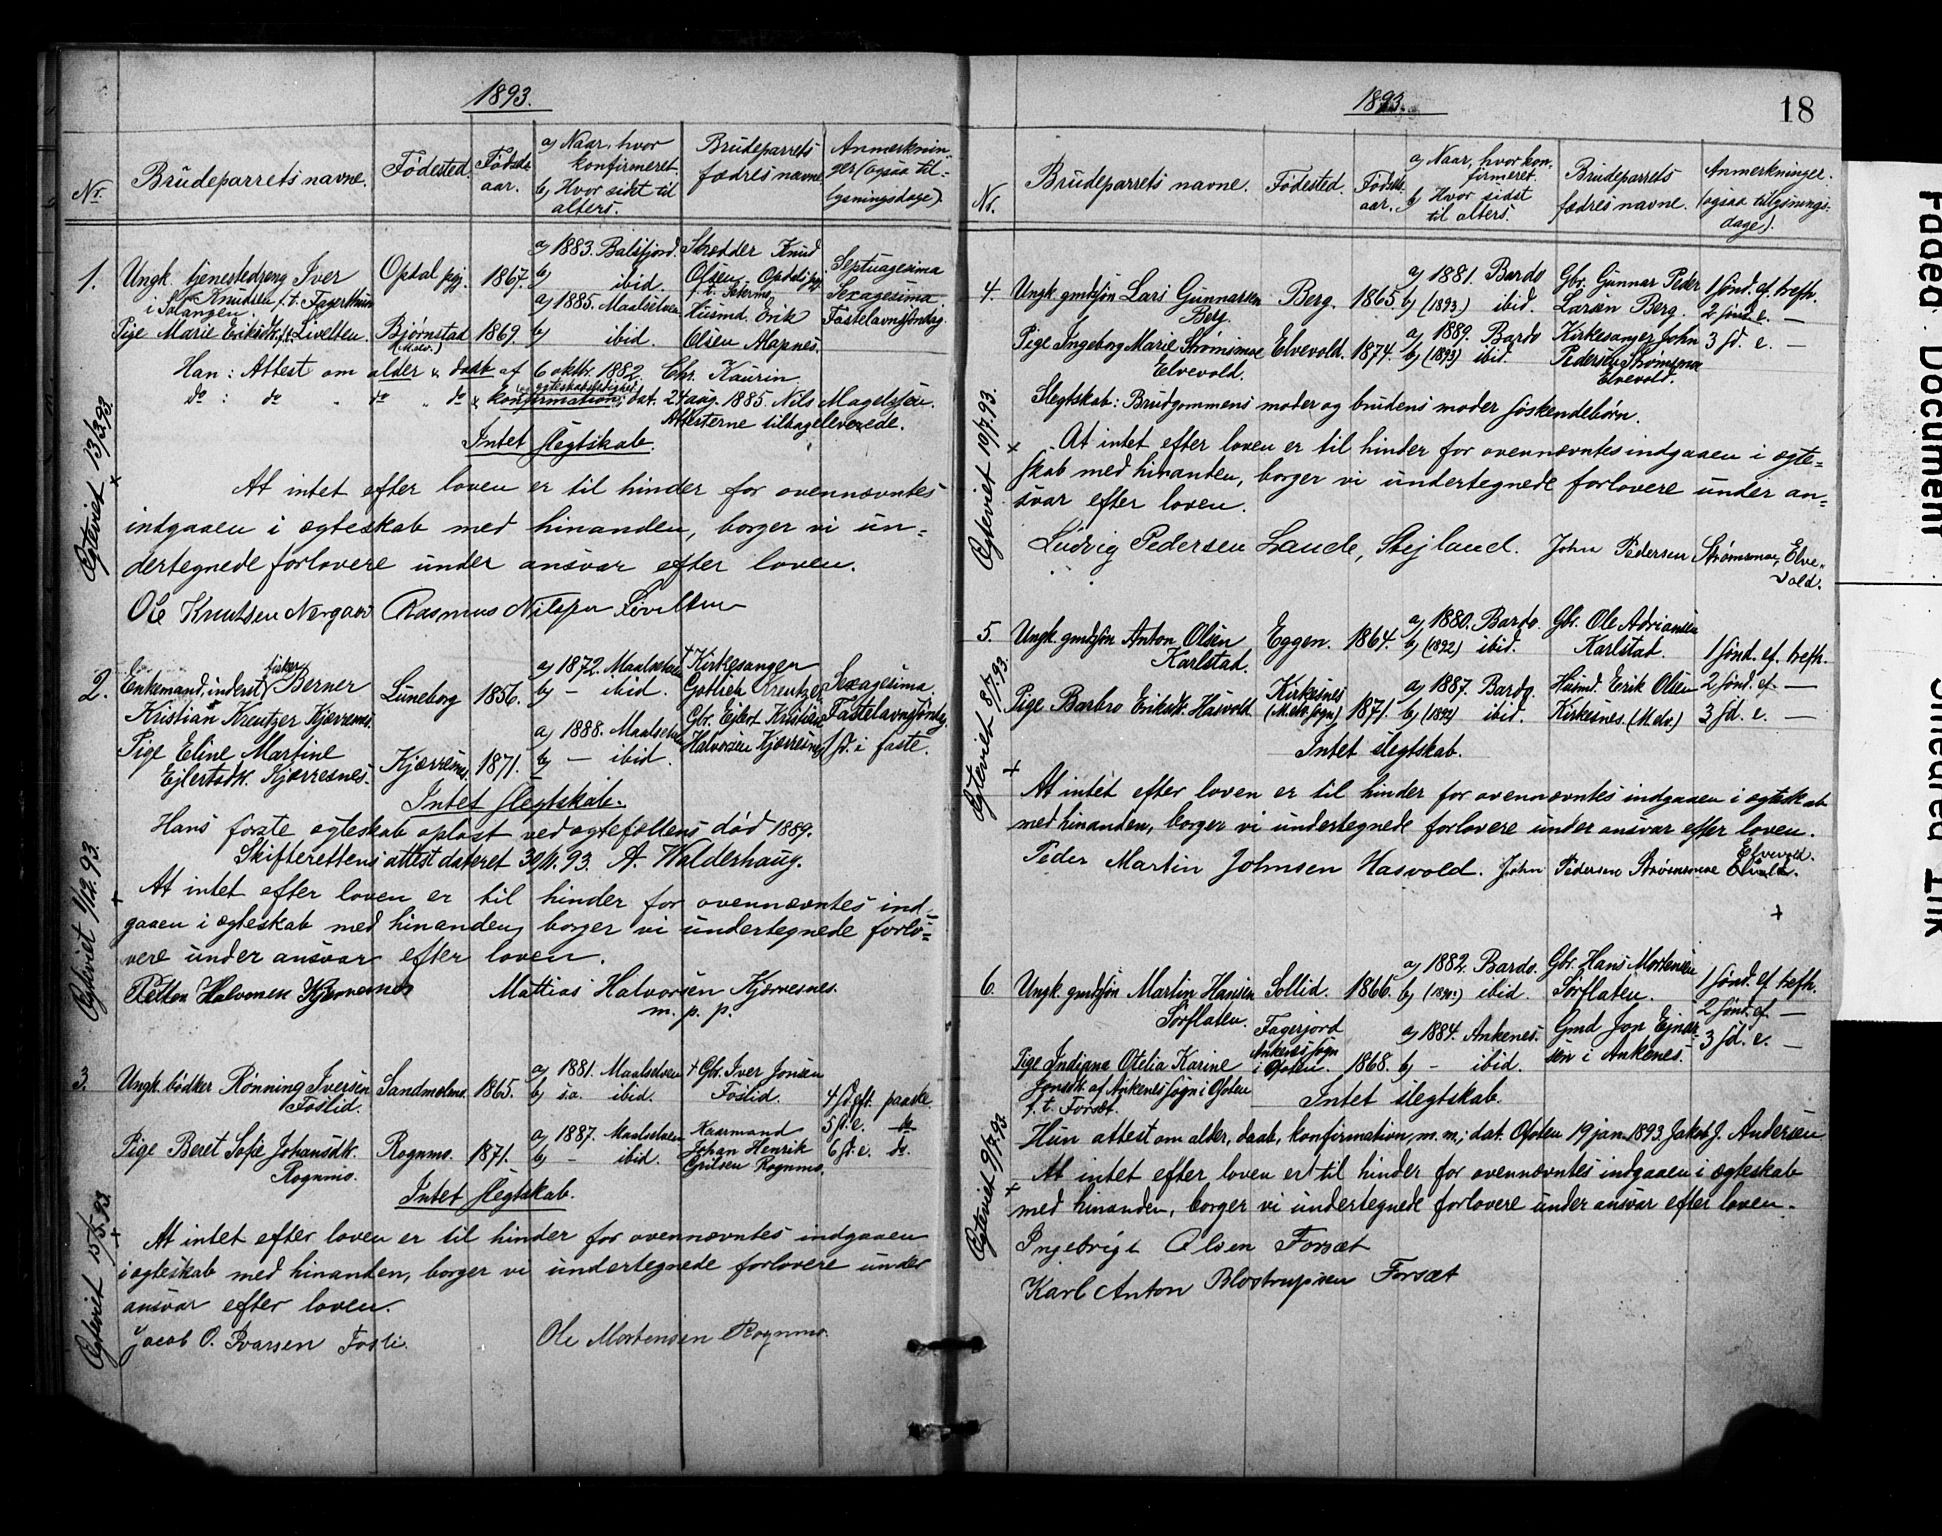 1893.
Nr. Brudeparrets navne. Fødested. Fødselsaar. a) Naar, hvor konfirmeret. b) Hvor sidst til alters. Brudeparrets fædres navne Anmerkninger (ogsaa tillysningsdage).
1. Ungk. tjenestedreng Iver Opdal pgj. 1867. a) 1883. Balsfjord. Skrædder Knud Septuagesima
Knudsen f. t. b) ibid. Olsen, Opdals pgj. Sexagesima.
i Salangen. a) 1885. Maalselven Husmd. Erik Fastelavnssøndag.
Pige Marie Eriksdtr. Bjørnstad 1869. b) ibid. Olsen
Han: Attest om alder & daab af 6 oktbr. 1882. Chr. Kaurin
do : do " do " do & konfirmation, dat. 24 aug. 1885. Nils Magelssen.
Attesterne tilbageleverede.
Intet slegtskab.
Ægteviet 13/3 93.
At intet efter loven er til hinder for ovennævntes
indgaaen i ægteskab med hinanden, borger vi un-
dertegnede forlovere under ansvar efter loven.
Ole Knutsen Rasmus Nilsen
2. Enkemand, inderst fisker Berner Luneborg 1856. a) 1872. Maalselven † Kirkesanger Sexagesima.
Kristian Kreutzer Kjærresnes. b) – ibid. Gotlieb Kreutzer Fastelavnssøndag.
Pige Eline Martine Kjærresnes. 1871. a) 1888. Maalselven Gbr. Ejlert Kristian 1 sd. i faste.
Ejlertsdtr. Kjærresnes. b) – ibid. Halvorsen Kjærresnes
Intet slegtskab.
Hans første ægteskab opløst ved ægtefællens død 1889.
Skifterettens attest dateret A. Walderhaug.
Ægteviet 93.
At intet efter loven er til hinder for ovennævntes ind-
gaaen i ægteskab med hinanden, borger vi undertegnede forlo-
vere under ansvar efter loven.
Halvorsen Mattias Halvorsen Kjærresnes.
m. p. p.
3. Ungk. bødker Rønning Iversen Sandmoelvmo. 1865. a) 1881. Maalselven † Gbr. Iver Jonsen 4 sd. eft. paaske.
Foslid. b) s.a. ibid. Foslid. 5 sd. e. do
Pige Beret Sofie Johansdtr. Rognmo. 1871. a) 1887. Maalselven Johan Henrik 6 sd. e. do.
Rognmo. b) – ibid. Rognmo.
Intet slegtskab.
Ægteviet 15/5 93.
At intet efter loven er til hinder for ovennævntes indgaaen
i ægteskab med hinanden, borger vi undertegnede forlovere under
ansvar efter loven.
Jacob O. Ivarsen Fosli. Ole Mortensen Rognmo
1893. 18
Nr. Brudeparrets navne. Fødested. Fødselsaar. a) Naar, hvor konfirmeret. b) Hvor sidst til alters. Brudeparrets fædres navne. Anmerkninger. (ogsaa tillysningsdage).
4. Ungk. gmdssøn Lars Gunnarsen Berg. 1865. a) 1881. Bardo Gbr. Gunnar Peder 1 sønd. ef. trefh.
Berg. b) (1893.) ibid. Larsen Berg. 2 sønd. e. —
Pige Ingeborg Marie Strømsmoe Elvevold. 1874. a) 1889. Bardo Kirkesanger John 3 sd. e. —
Elvevold. b) (1893) ibid. Pedersen Strømsmoe
Elvevold.
Slegtskab: Brudgommens moder og brudens moder søskendebørn.
Ægteviet 10/7. 93.
At intet efter loven er til hinder for ovennævntes indgaaen i ægte-
skab med hinanden, borger vi undertegnede forlovere under an-
svar efter loven.
Ludvig Pedersen Lande, Stejland. John Pedersen Strømsmoe, Elve-
vold.
5. Ungk. gmdssøn Anton Olsen Eggen. 1864. a) 1880. Bardo. Gbr. Ole Adriansen
Karlstad. b) (1892) ibid. Karlstad. 1 sønd. ef. trefh.
Pige Barbro Eriksdtr. Hasvold Kirkesnes 1871. a) 1887. Bardo. Husmd. Erik Olsen 2 sønd. ef. —
(M.elv. sogn) b) (1892) ibid. Kirkesnes. (M.elv.) 3 sd. e. —
Intet slegtskab.
Ægteviet 8/7. 93.
At intet efter loven er til hinder for ovennævntes indgaaen i ægteskab
med hinanden, borger vi undertegnede forlovere under ansvar efter loven.
Peder Martin Johnsen Hasvold. John Pedersen Strømsmoe Elvevold.
6. Ungk. gmdssøn Martin Hansen Sollid. 1866. a) 1882. Bardo. Gbr. Hans Mortensen 1 sønd. ef. trefh.
Sørflaten. b) ibid. Sørflaten. 2 sønd. ef. —
Pige Indiana Otelia Karine Fagerjord 1868. a) 1884. Ankenes. Gmd Jon Ejnar- 3 sd. e. —
Ankenes sogn i Ofoten. b) – ibid. sen i Ankenes.
Jonsdtr. af Ankenes sogn i Ofoten
f. t. Forsæt.
Intet slegtskab.
Hun attest om alder, daab, konfirmation, m. m.; dat. Ofoten 19 jan. 1893. Jakob J. Andersen
Ægteviet 9/7. 93.
At intet efter loven er til hinder for ovennævntes indgaaen i ægteskab
med hinanden, borger vi undertegnede forlovere under ansvar efter loven.
Ingebrigt Olsen Forsæt
Karl Anton Blostrupsen Forsæt
Faded Document
Smeared Ink